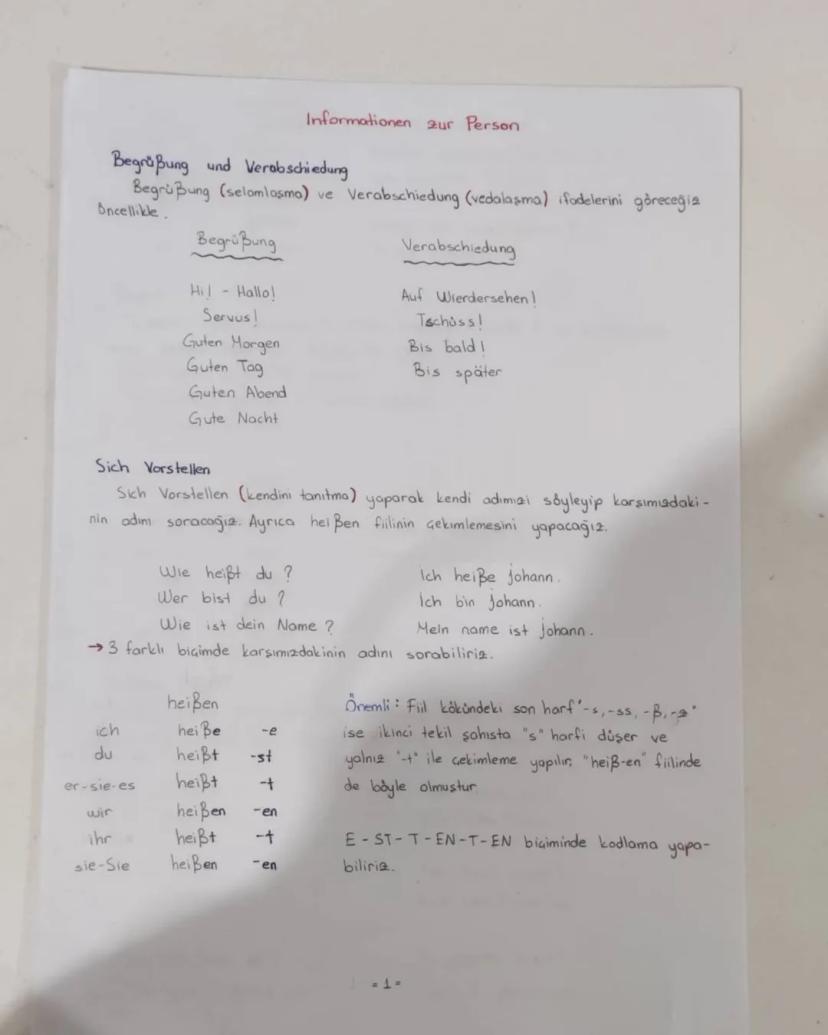 Informationen zur Person
Begrüßung und Verabschiedung
Begrüßung (selamlaşma) ve Verabschiedung (vedalaşma) ifadelerini göreceğiz
öncellikle.
Begrüßung
Verabschiedung
Hi! - Hallo!
Auf Wierdersehen!
Servus!
Tschüss!
Guten Morgen
Bis bald!
Guten Tag
Bis später
Guten Abend
Gute Nacht
Sich Vorstellen
Sich Vorstellen (kendini tanıtma) yaparak kendi adımızı söyleyip karşımızdaki-
nin adını soracağız. Ayrıca heißen fiilinin çekimlemesini yapacağız.
Wie heißt du ?
Ich heiße Johann.
Wer bist du ?
Ich bin Johann.
Wie ist dein Name ?
Mein name ist Johann.
→ 3 farklı biçimde karşımızdakinin adını sorabiliriz.
heißen
ich heiße -e
du heißt -st
er-sie-es heißt -t
wir heißen -en
ihr heißt -t
sie-Sie heißen -en
Önemli : Fiil kökündeki son harf "-s, -ss, -ß, -z"
ise ikinci tekil şahısta "s" harfi düşer ve
yalnız "-t" ile çekimleme yapılır; "heiß-en" fiilinde
de böyle olmuştur.
E - ST - T - EN - T - EN biçiminde kodlama yapa-
biliriz.
= 1 =